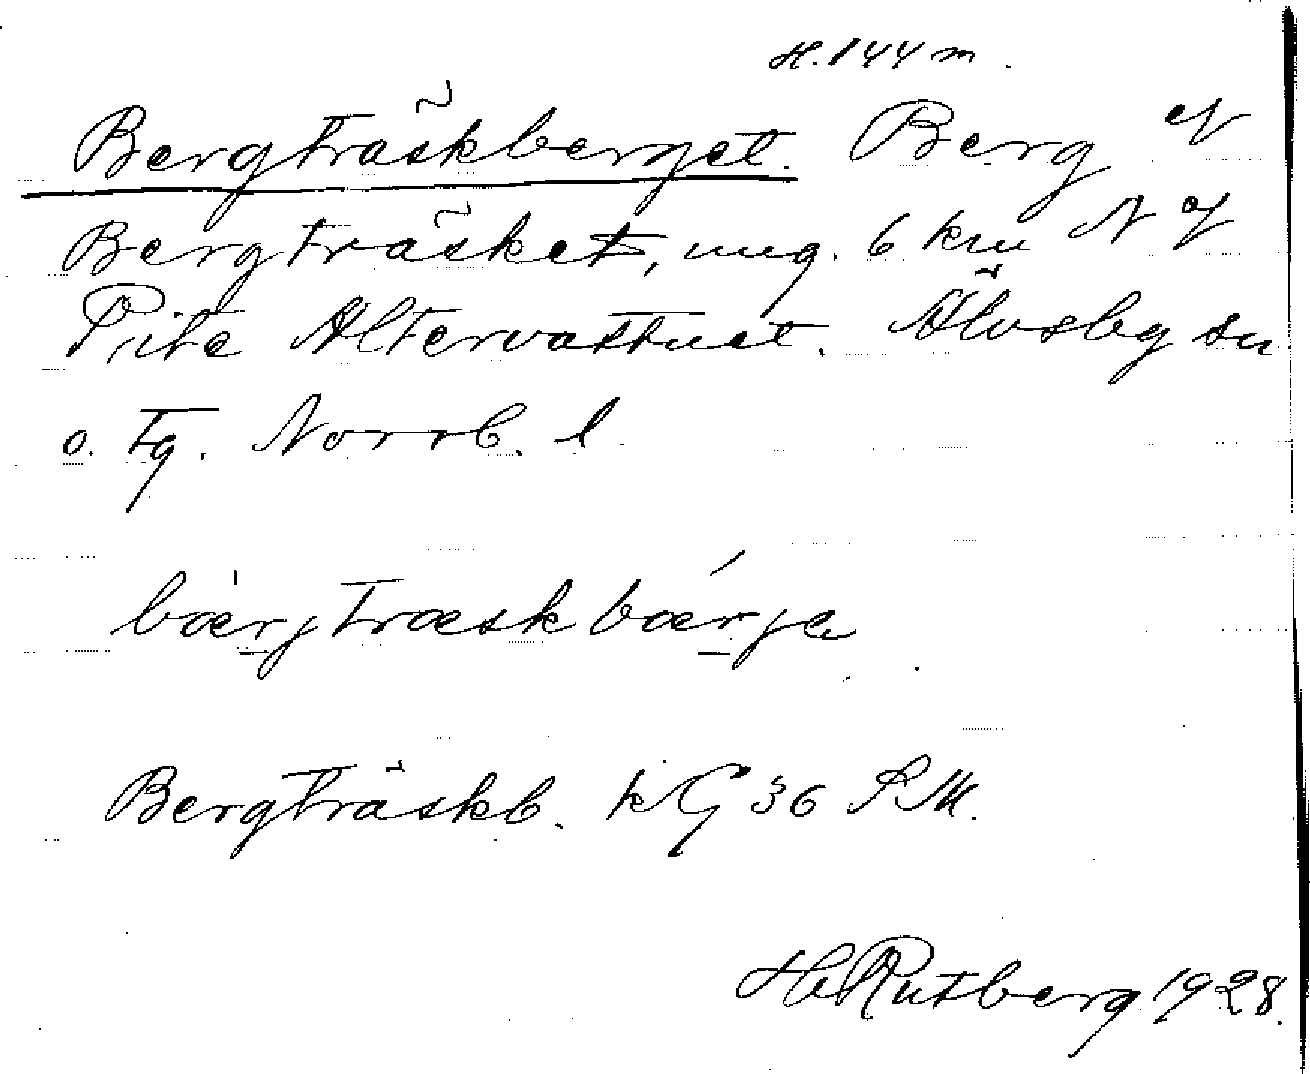 H. 144 m.
Bergträskberget. Berg N
Bergträsket, ung. 6 km N of
Pite Altervattnet. Älvsby sn
o. tg. Norrb. l.
bærjtræskbærjə
Bergträskb. kG 36 SM.
H Rutberg 1928.